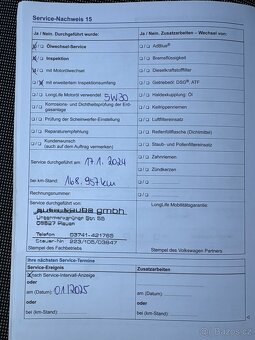 Service-Nachweis 15
Ja / Nein. Durchgeführt wurde:
Ölwechsel-Service
Inspektion
mit Motorölwechsel
mit erweitertem Inspektionsumfang
LongLife Motoröl verwendet 5W30
Korrosions- und Dichtheitsprüfung der Erdgasanlage
Prüfung der Scheinwerfer-Einstellung
Reparaturempfehlung
Kundenwunsch
(auch auf dem Auftrag vermerken)
Service durchgeführt am: 17.1.2024
bei km-Stand: 168.957km
Rechnungsnummer:
gmbh
08527 Plauen
Telefon 03741-421765
Steuer-Nr. 223/105/03847
Stempel des Fachbetriebs
Ja / Nein. Zusatzarbeiten – Wechsel von:
AdBlue®
Bremsflüssigkeit
Dieselkraftstofffilter
Getriebeöl: DSG®, ATF
Haldexkupplung: Öl
Keilrippenriemen
Luftfiltereinsatz
Reifenfüllflasche (Dichtmittel)
Staub- und Pollenfiltereinsatz
Zahnriemen
Zündkerzen
LongLife Mobilitätsgarantie:
Stempel des Volkswagen Partners
Ihre nächsten Service-Termine
Service-Ereignis
Zusatzarbeiten
nach Service-Intervall-Anzeige
oder
am (Datum): 01/2025
oder
bei (km-Stand):
am (Datum):
oder
bei (km-Stand):